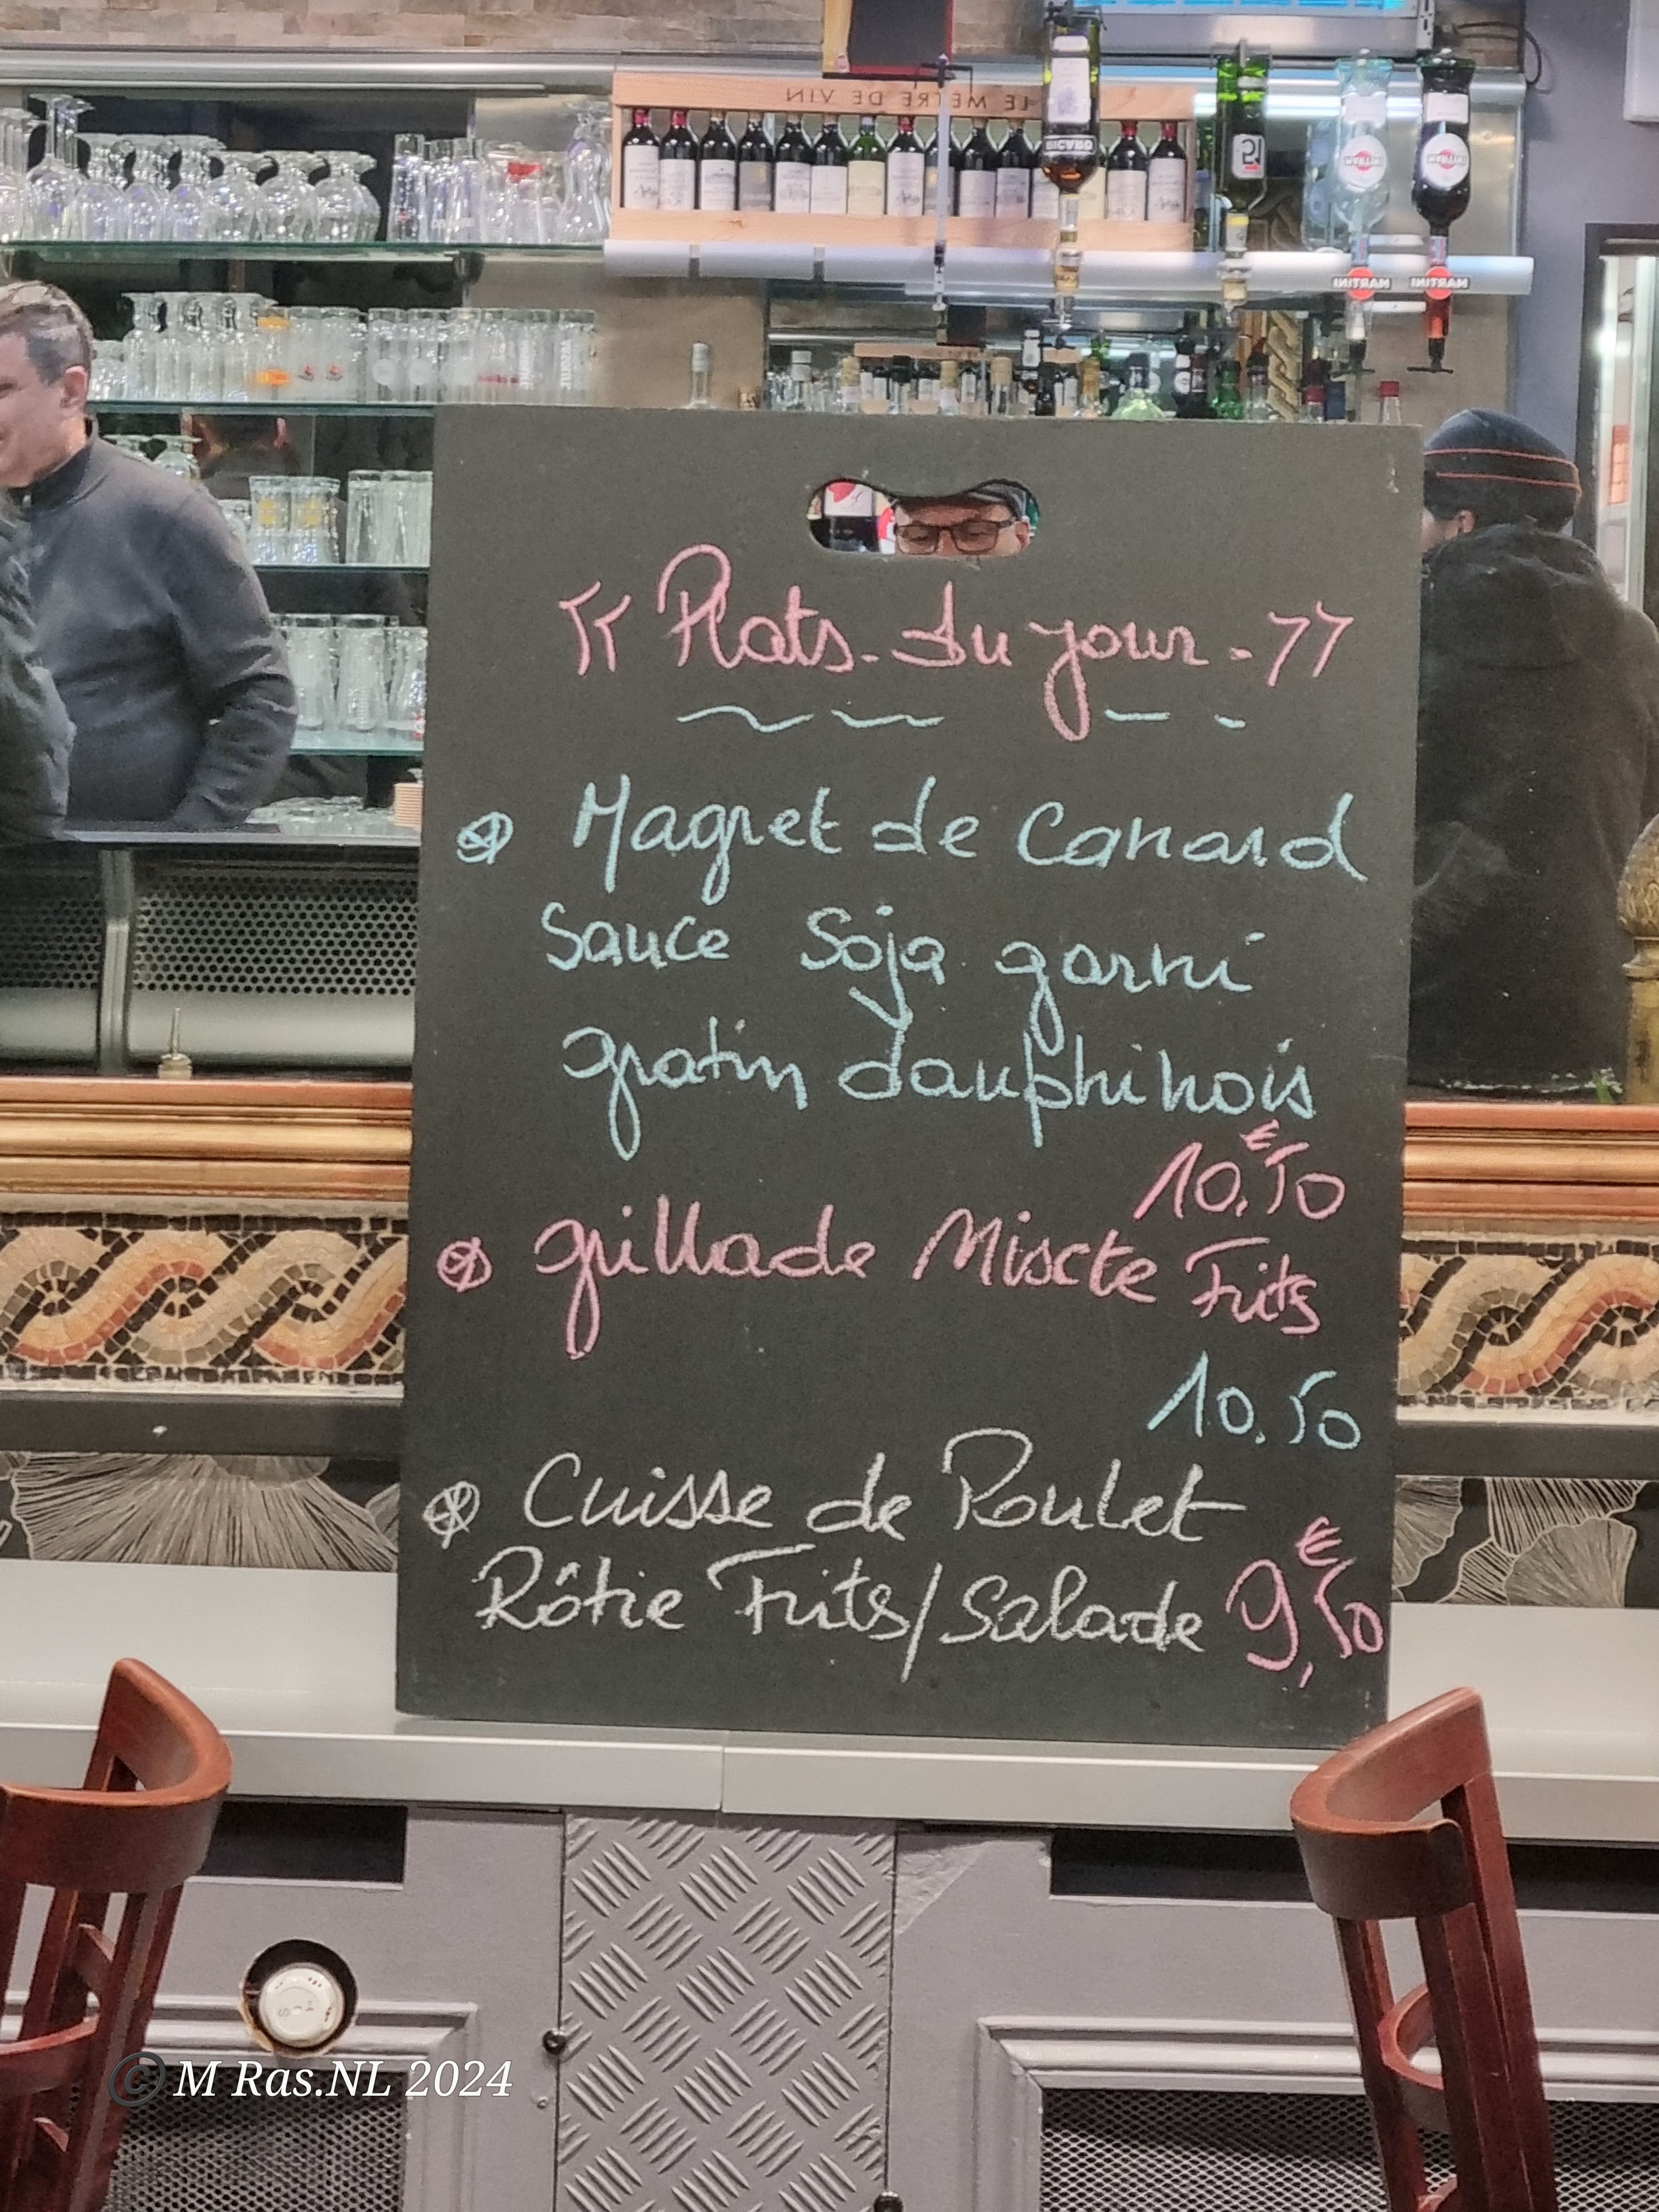 LE METRE DE VIN
RICARD
51
MARTINI
MARTINI
MARTINI
MARTINI
« Plats du jour »
Magret de Canard
Sauce Soja garni
gratin dauphinois
10,50 €
grillade Miscte Frits
10,50
Cuisse de Poulet
Rôtie Frits/Salade 9,50 €
© M Ras.NL 2024